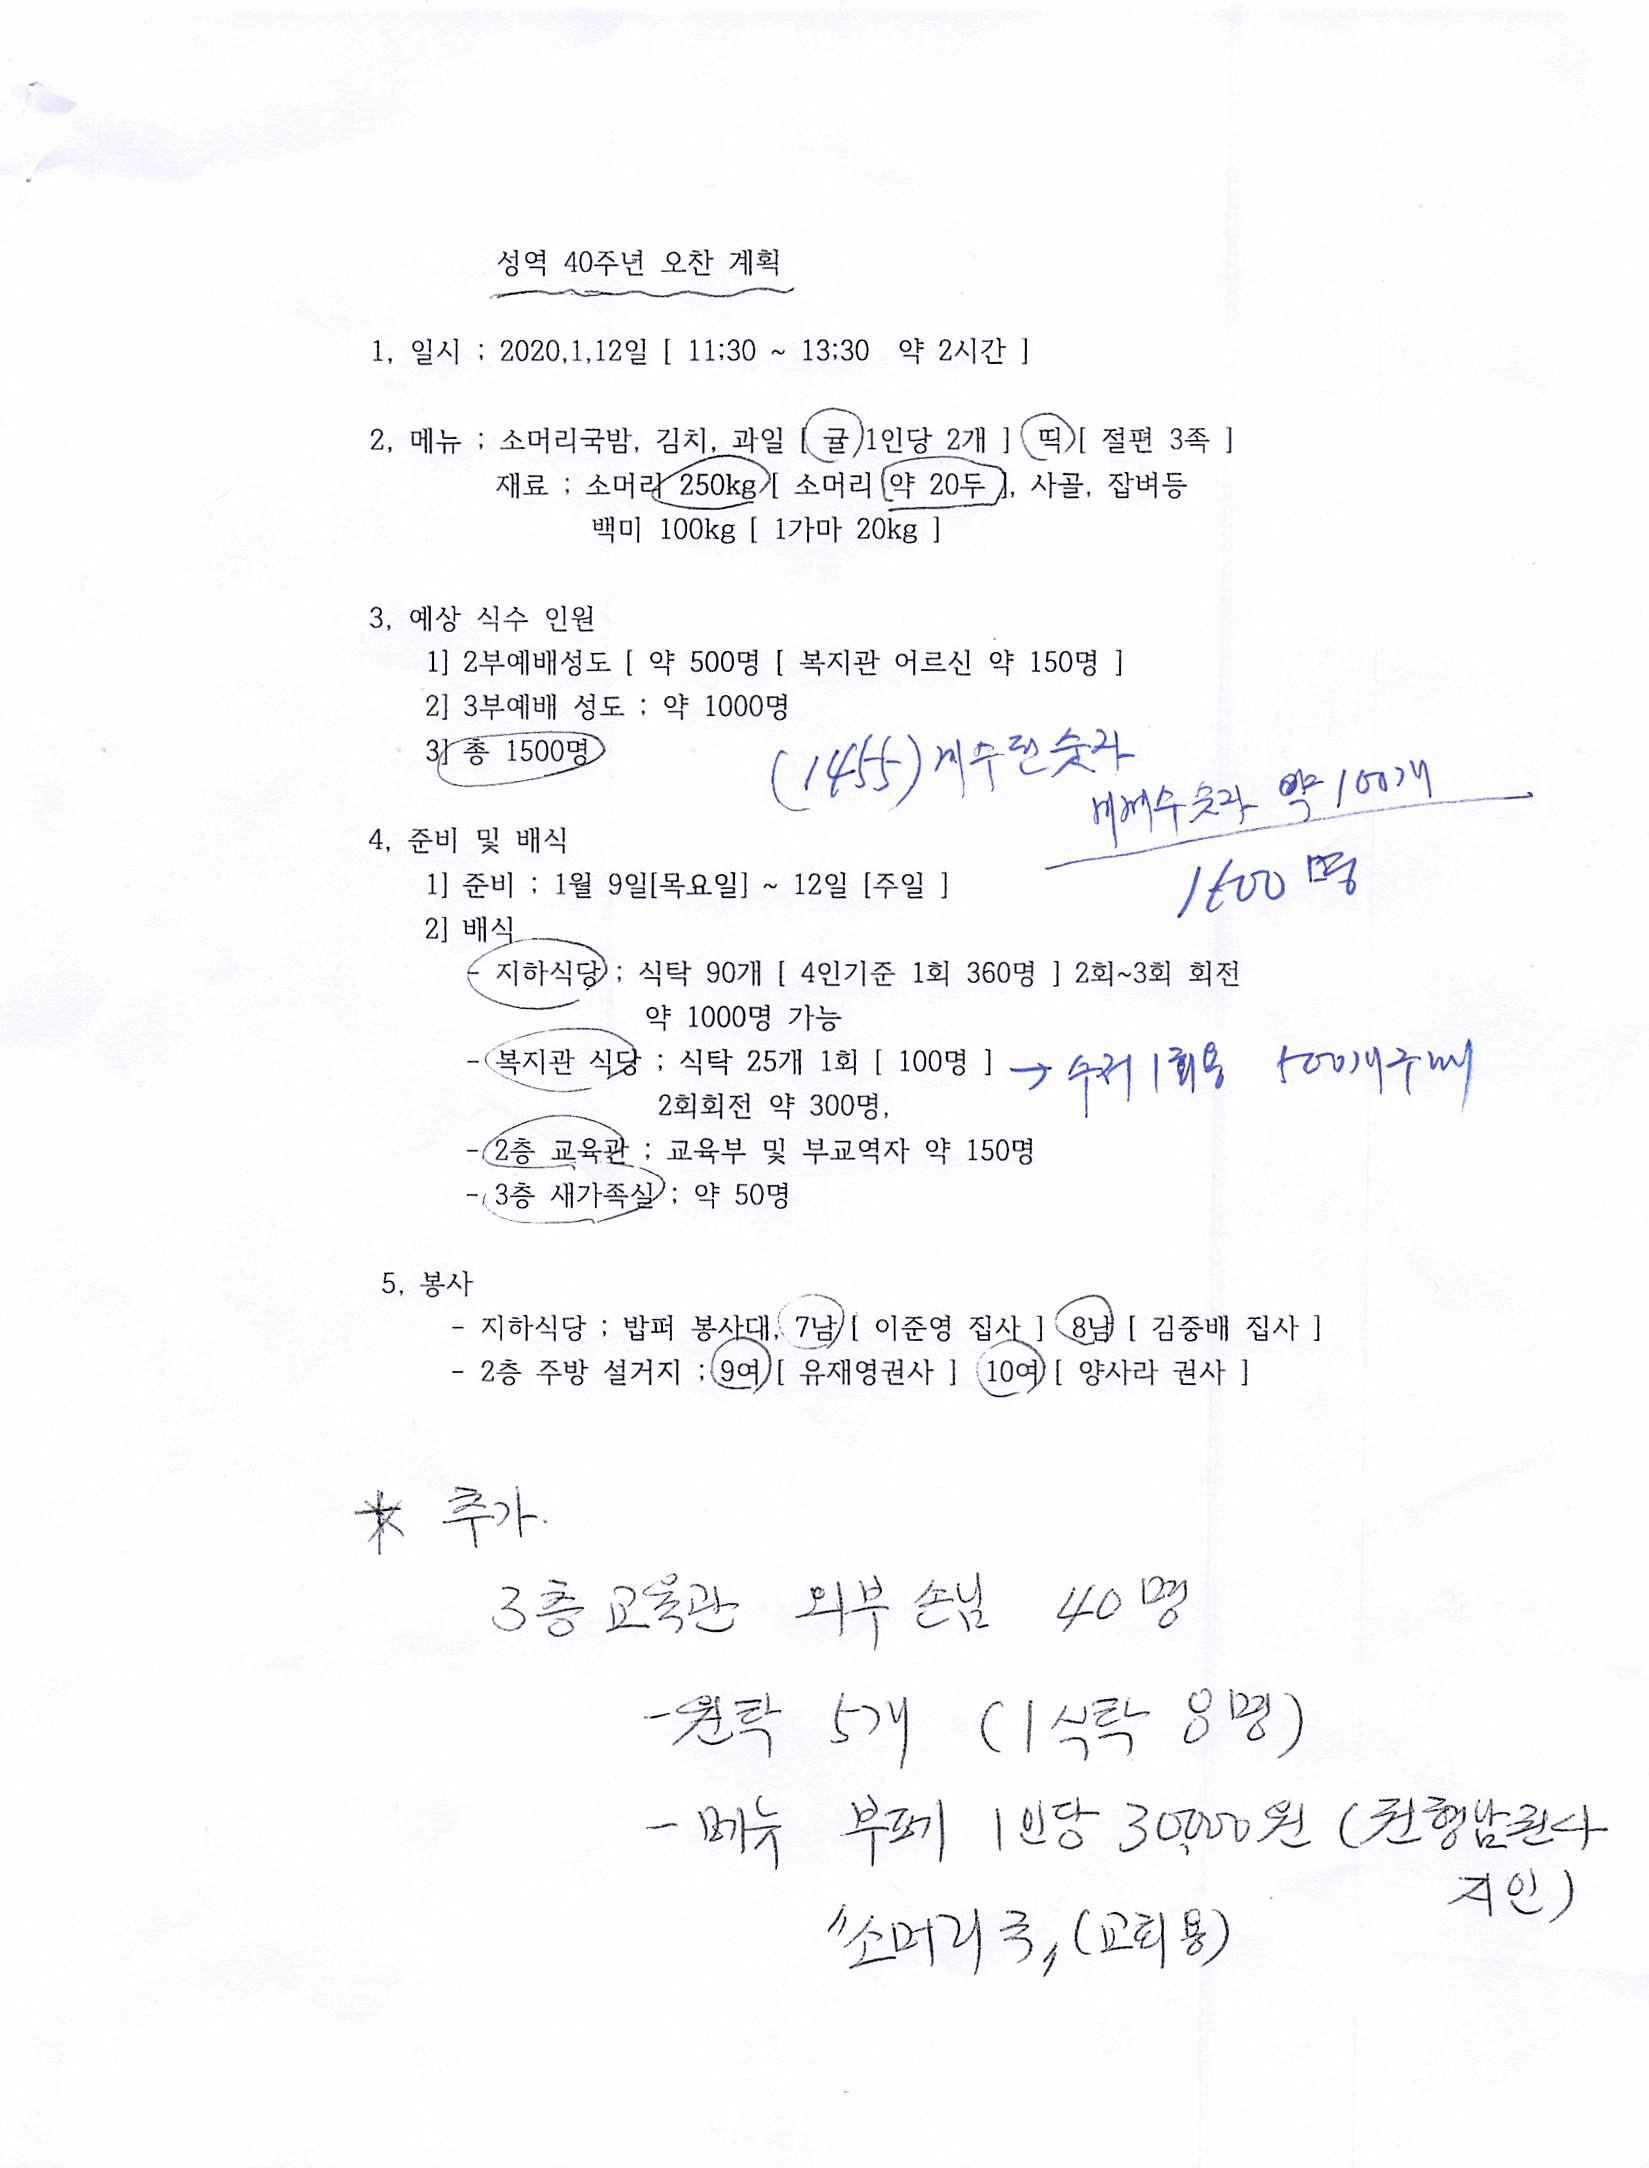 성역 40주년 오찬 계획
1, 일시 ; 2020,1,12일 [ 11;30 ~ 13;30 약 2시간 ]
2, 메뉴 ; 소머리국밤, 김치, 과일 [ 귤 1인당 2개 ] 떡 [ 절편 3족 ]
재료 ; 소머리 250kg [ 소머리 약 20두 ], 사골, 잡벼등
백미 100kg [ 1가마 20kg ]
3, 예상 식수 인원
1] 2부예배성도 [ 약 500명 [ 복지관 어르신 약 150명 ]
2] 3부예배 성도 ; 약 1000명
3] 총 1500명
(1455) 계수된 숫자
약 100개
명
4, 준비 및 배식
1] 준비 ; 1월 9일[목요일] ~ 12일 [주일 ]
2] 배식
- 지하식당 ; 식탁 90개 [ 4인기준 1회 360명 ] 2회~3회 회전
약 1000명 가능
- 복지관 식당 ; 식탁 25개 1회 [ 100명 ] → 수저 1회용 500개 구매
2회회전 약 300명,
- 2층 교육관 ; 교육부 및 부교역자 약 150명
- 3층 새가족실 ; 약 50명
5, 봉사
- 지하식당 ; 밥퍼 봉사대, 7남 [ 이준영 집사 ] 8남 [ 김중배 집사 ]
- 2층 주방 설거지 ; 9여 [ 유재영권사 ] 10여 [ 양사라 권사 ]
* 추가.
3층 교육관 외부 손님 40명
- 원탁 5개 (1식탁 8명)
- 메뉴 부페 1인당 30,000원 (천형남권사
지인)
"소머리국" (교회용)